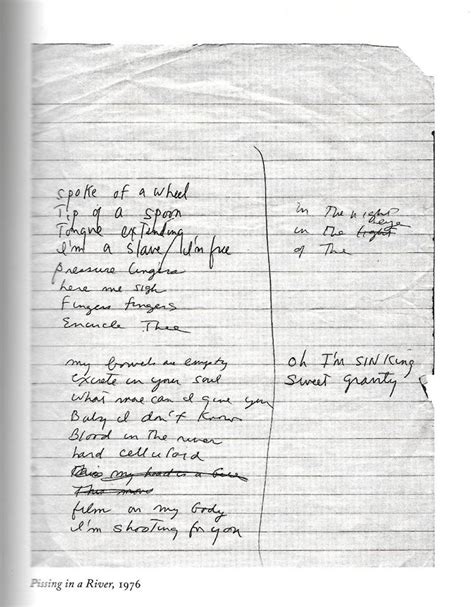 Spoke of a wheel
Tip of a spoon
Tongue extending
I'm a slave / I'm free
pressure lingers
here me sigh
Fingers fingers
Encircle Thee
my bowels are empty
Excrete in your soul
what more can I give you
Baby I don't know
Blood in the river
hard celluloid
my head is a
This
film on my body
I'm shooting for you
in the night
in the light eye
of the
oh I'm SINKing
Sweet gravity
Pissing in a River, 1976